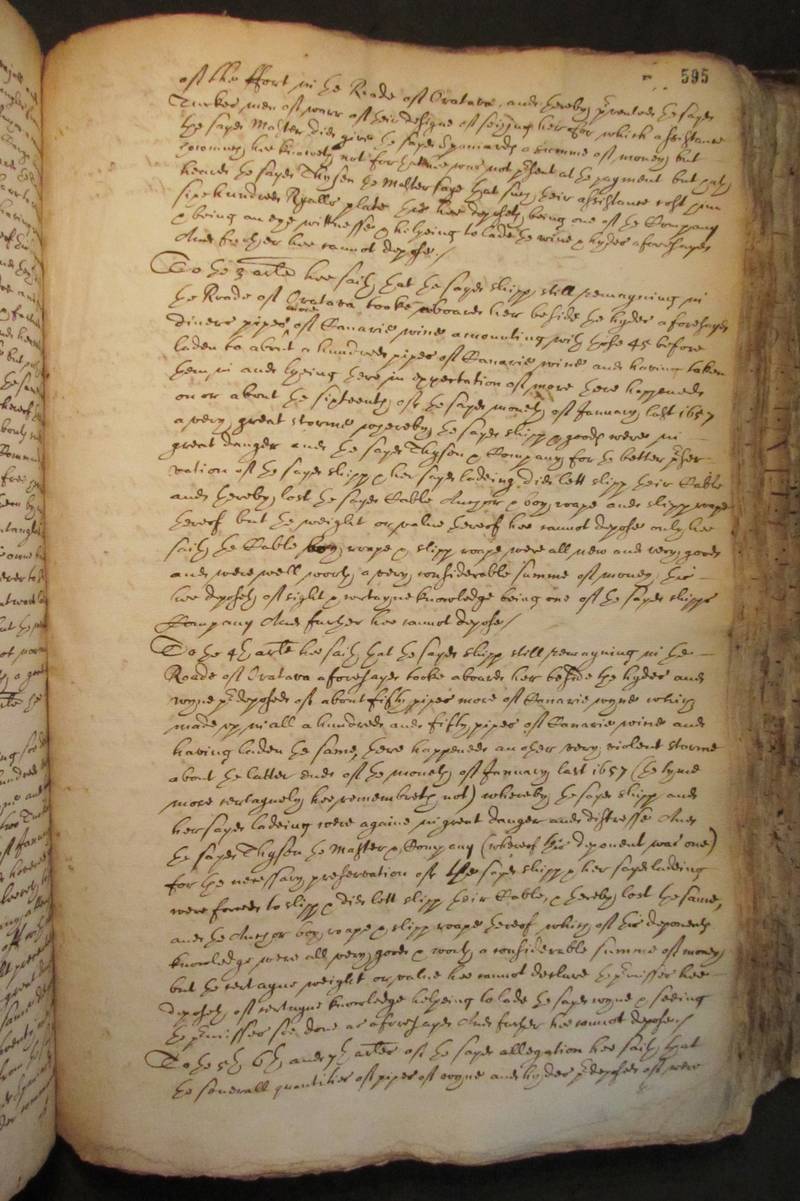 595
of the ffort in the Roade of Oratava, and thereby prevented the sayd
Turkes men of warr of their designe of seizing her for which assistance
the sayd Master did give the sayd Spaniards a summe of money but
howmuch hee knoweth not for hee was not present at the payment but hath
heard the sayd Thyson the Master saye that such their assistance cost him
six hundred Ryalls plate this hee deposeth being one of the Company
& being an eye wittnesse & helping to lade the wine & hydes aforesayd
And further hee cannot depose /
To the 3 article hee saith that the sayd shipp still remayning in
the Roade of Oratava tooke aboard her beside the hydes aforesayd
divers pipes more of Canarie wines amounting with those 45 before
laden to about a hundred pipes of Canarie wine and having taken
them in and lyeing there in expectation of more there happened
on or about the sixteenth of the sayd moneth of January last 1657
a very great storme whereby the sayd shipp & goods were in
great danger and the sayd Thyson & Company for the better preser=
vation of the sayd shipp & her sayd ladeing did lett slipp their Cable
and thereby lost the sayd Cable Anchor & boy roape and slipp roape
thereof but the weight or value thereof hee cannot depose only hee
saith the Cable boy roape & slipp roape were all new and very good
and were well worth a very considerable summe of money, this
hee deposeth of sight & certayne knowledge being one of the sayd shipps
Company And further hee cannot depose /
To the 4th article hee saith that the sayd shipp still remayning in the
Roade of Oratava aforesayd tooke aboard her beside the hydes and
wyne predeposed of about fifty pipes more of Canarie wyne which
made up in all a hundred and fifty pipes of Canarie wine and
having laden the same, there happened another very violent storme
about the latter end of the moneth of January last 1657 (the tyme
more certaynely hee remembreth not) whereby the sayd shipp and
her sayd ladeing were againe in great danger and distresse And
the sayd Thyson the Master & Company (whereof this deponent was one)
for the necessary preservation of the sayd shipp & her sayd ladeing
were forced to slipp & did lett slipp their Cable, & thereby lost the same,
and the Anchor boy roape & slipp roape thereof which of this deponents
knowledge were all very good & worth a considerable summe of money
but the certayne weight or value hee cannot declare the premisses hee
deposeth of certayne knowledge helping to lade the sayd wyne & seeing
the premisses soe done as aforesayd And further hee cannot depose /
To the 5th 6th and 7th articles of the sayd allegation hee saith that
the severall quantities of pipes of wyne and hydes predeposed of were